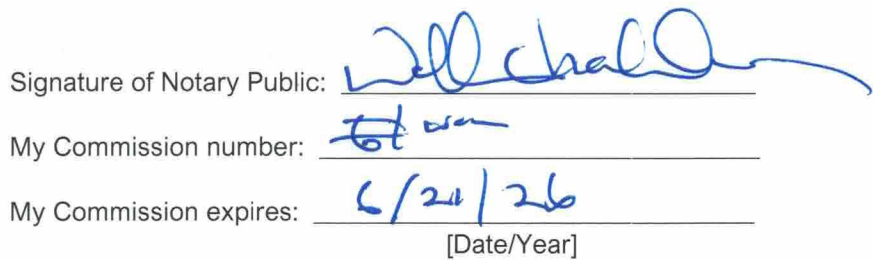 Signature of Notary Public:
My Commission number:
My Commission expires: 6/21/26
[Date/Year]